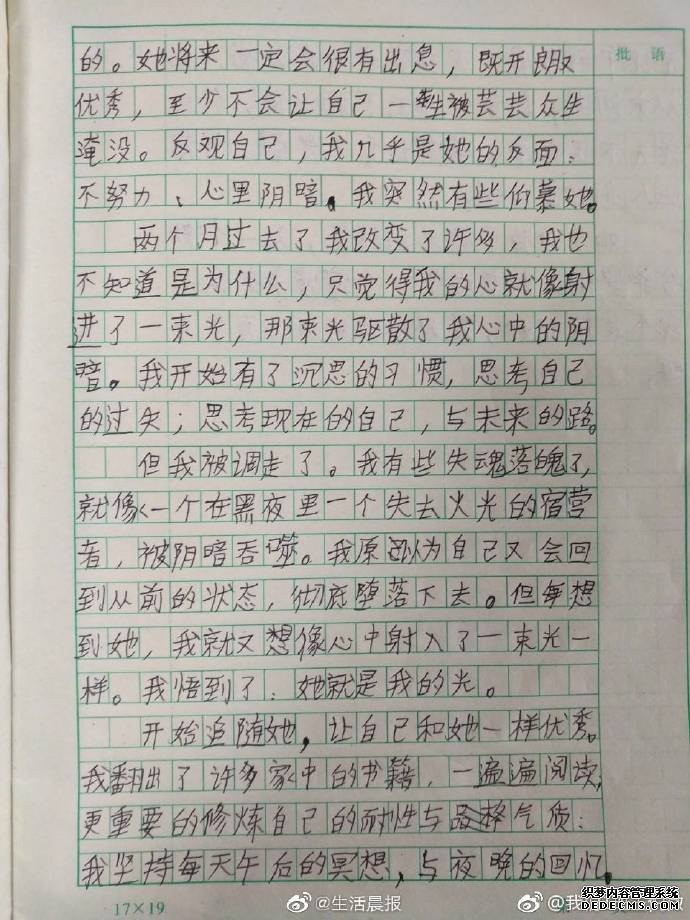 批 语
的。她将来一定会很有出息，既开朗又
优秀，至少不会让自己一生被芸芸众生
淹没。反观自己，我几乎是她的反面：
不努力、心里阴暗。我突然有些仰慕她。
两个月过去了我改变了许多，我也
不知道是为什么，只觉得我的心就像射
进了一束光，那束光驱散了我心中的阴
暗。我开始有了沉思的习惯，思考自己
的过失；思考现在的自己，与未来的路。
但我被调走了。我有些失魂落魄了，
就像一个在黑夜里一个失去火光的宿营
者，被阴暗吞噬。我原以为自己又会回
到从前的状态，彻底堕落下去。但每想
到她，我就又想像心中射入了一束光一
样。我悟到了：她就是我的光。
开始追随她，让自己和她一样优秀。
我翻出了许多家中的书籍，一遍遍阅读，
更重要的修炼自己的耐性与品格气质：
我坚持每天午后的冥想，与夜晚的回忆。
17×19
@生活晨报
@我
织梦内容管理系统
DEDECMS.COM